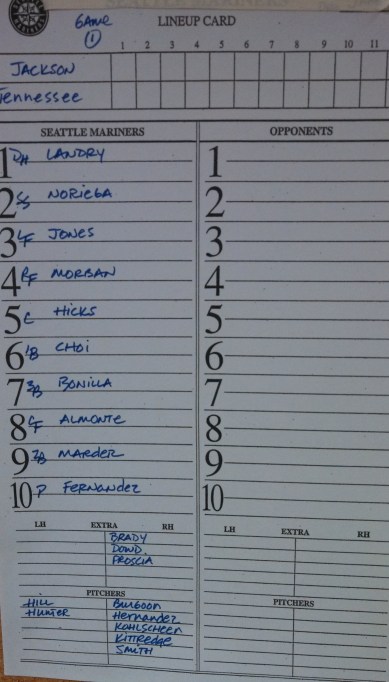 Game LINEUP CARD
1
1 2 3 4 5 6 7 8 9 10 11
JACKSON
Tennessee
SEATTLE MARINERS OPPONENTS
1 DH LANDRY 1
2 SS NORIEGA 2
3 LF JONES 3
4 RF MORBAN 4
5 C HICKS 5
6 1B CHOI 6
7 3B BONILLA 7
8 CF ALMONTE 8
9 2B MARDER 9
10 P FERNANDEZ 10
LH EXTRA RH LH EXTRA RH
BRADY
DOWD
PROSCIA
PITCHERS PITCHERS
Hill Burgoon
Hunter Hernandez
KOHLSCHEEN
KITTREDGE
SMITH